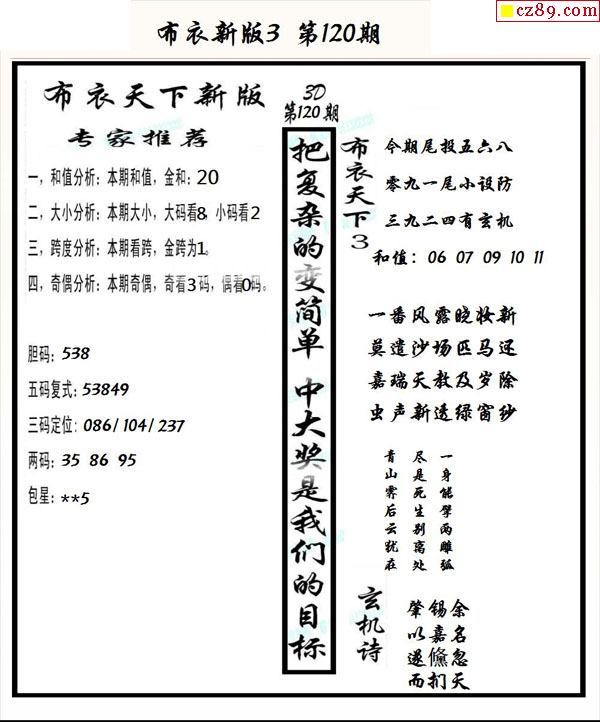 cz89.com
布衣新版3 第120期
布衣天下新版
专家推荐
一，和值分析：本期和值，金和：20
二，大小分析：本期大小，大码看8，小码看2
三，跨度分析：本期看跨，金跨为1。
四，奇偶分析：本期奇偶，奇看3码，偶看0码。
胆码：538
五码复式：53849
三码定位：086/104/237
两码：35 86 95
包星：**5
3D
第120期
把复杂的变简单 中大奖是我们的目标
布衣天下3
今期尾投五六八
零九一尾小设防
三九二四有玄机
和值：06 07 09 10 11
一番风露晓妆新
莫遣沙场匹马还
嘉瑞天教及岁除
虫声新透绿窗纱
一身能擘两雕弧
尽是死生别离处
青山霁后云犹在
玄机诗
余名忽天
锡嘉儵扪
肇以遂而